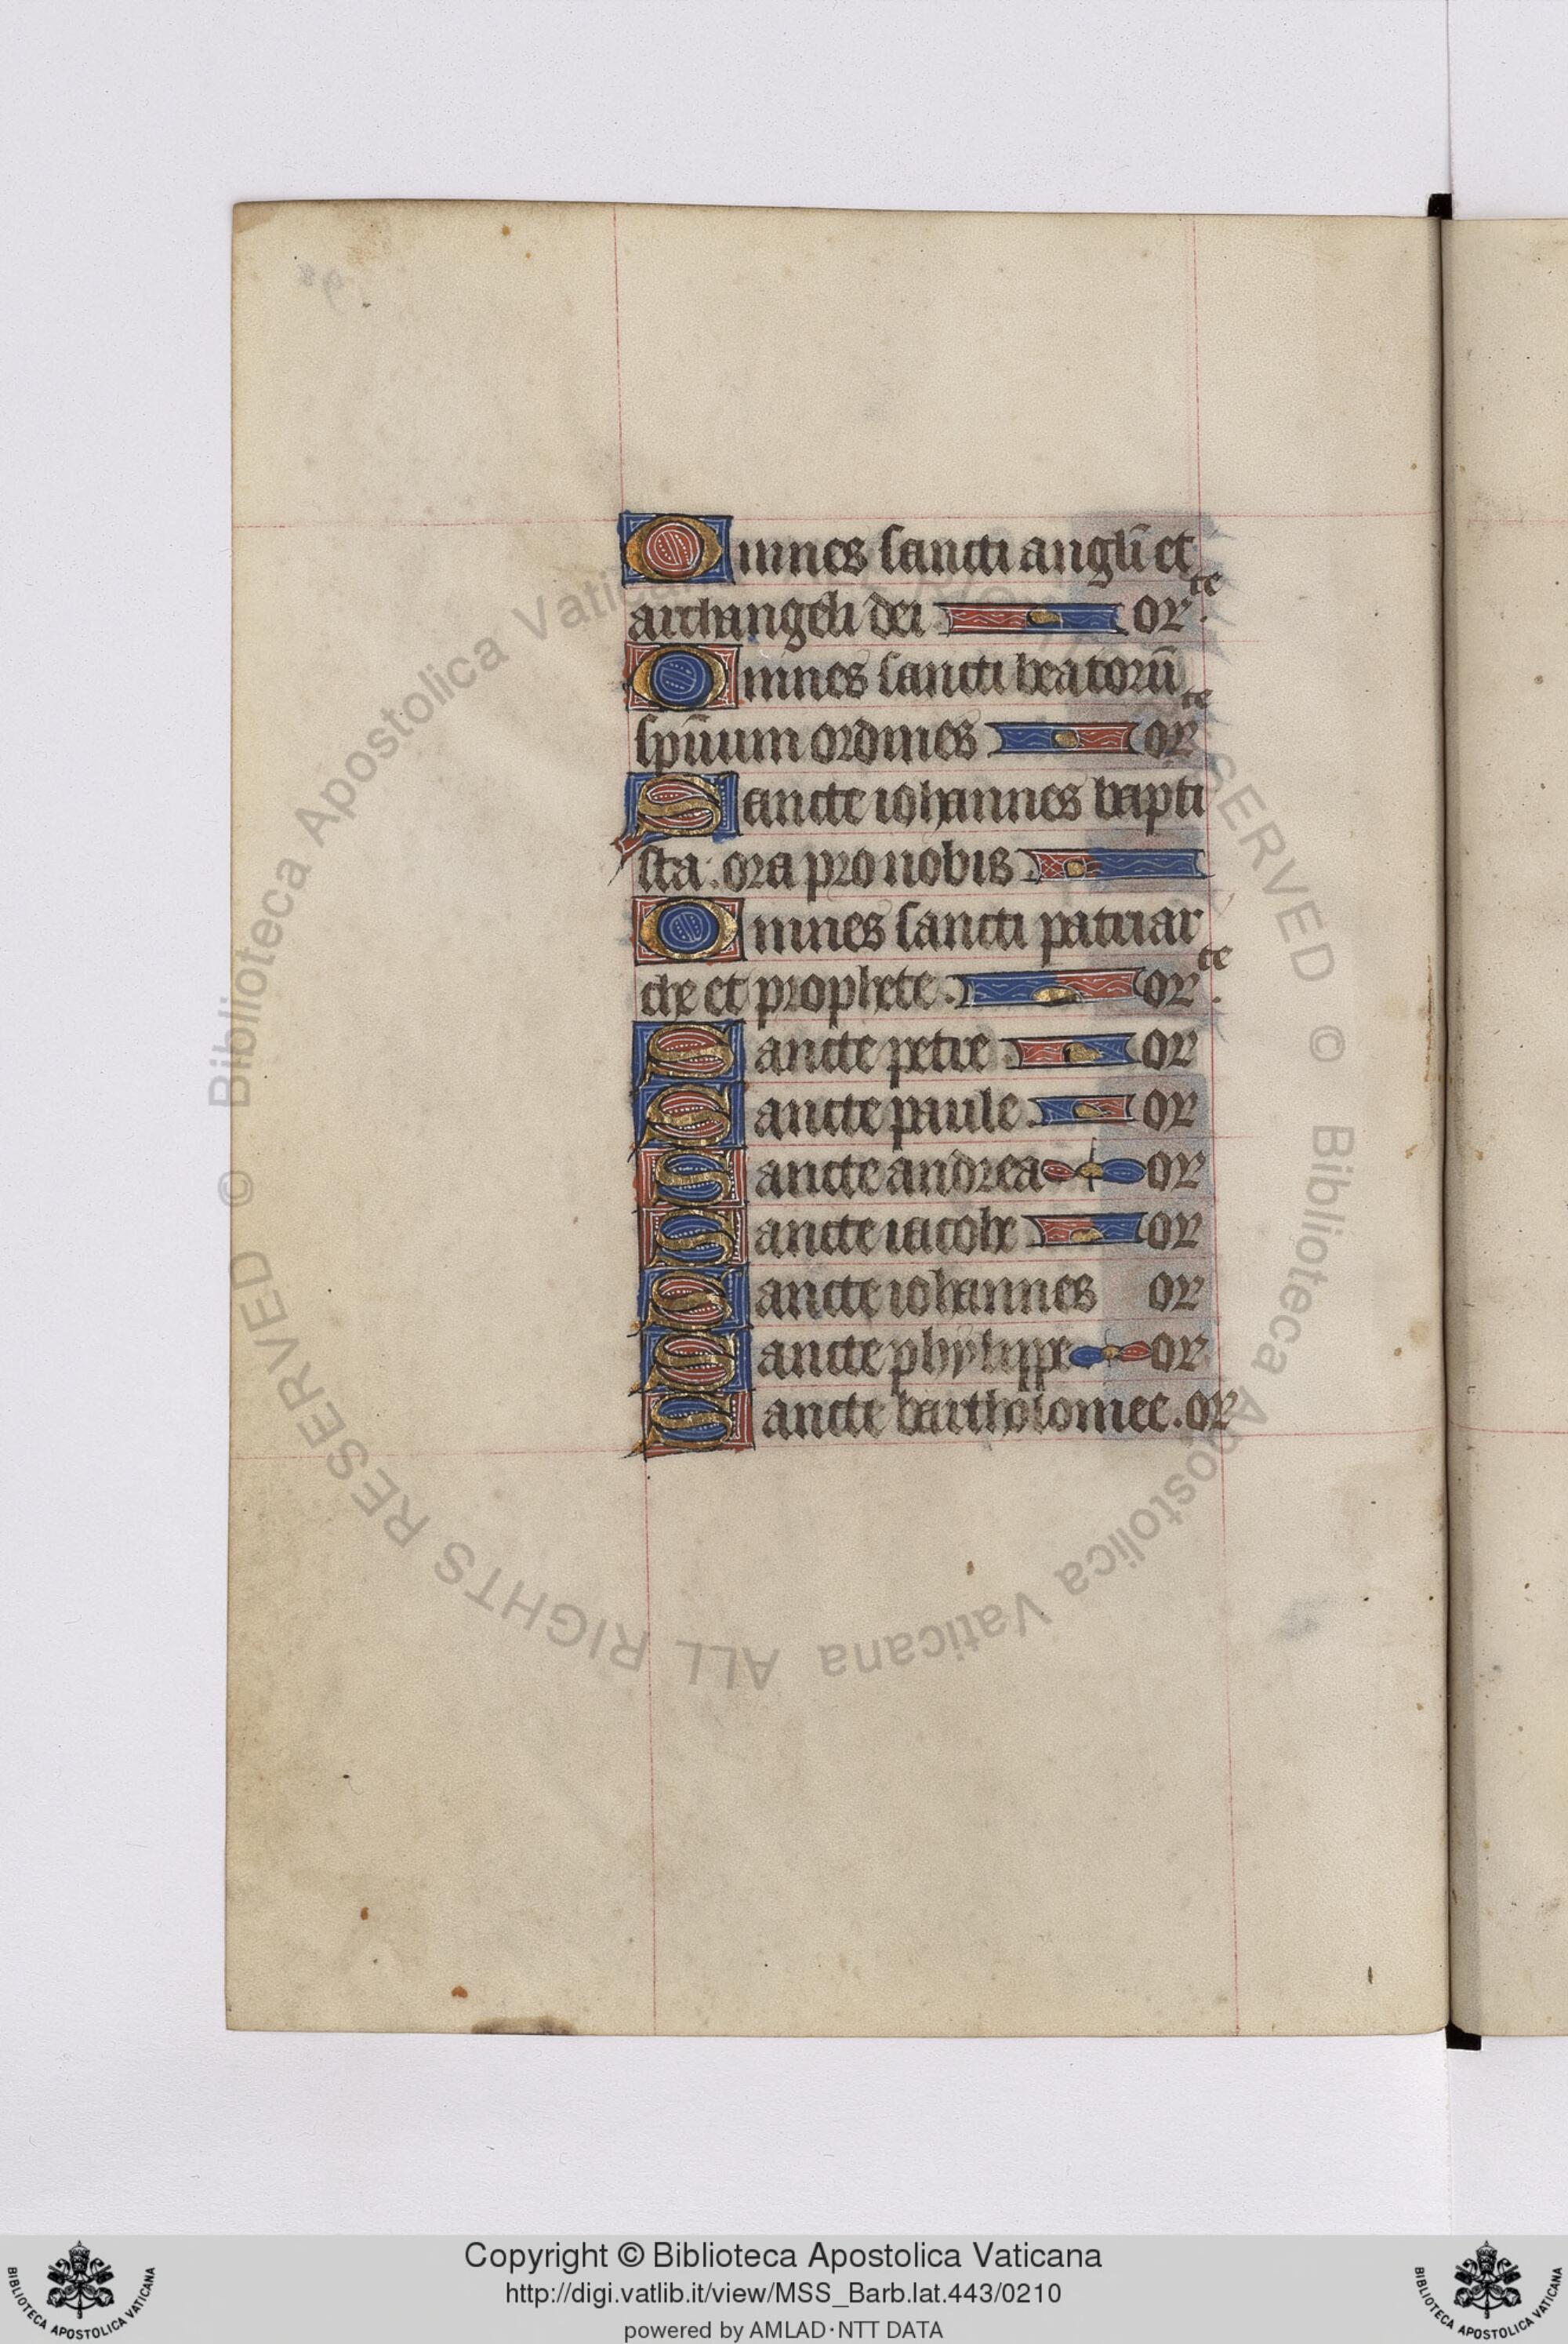 Omnes sancti angli̅ et
archangeli dei or te.
Omnes sancti beatoru̅
spu̅um ordines or te
Sancte iohannes bapti
sta. ora pro nobis
Omnes sancti patriar
che et prophete. or te.
Sancte petre or
Sancte paule. or
Sancte andrea or
Sancte iacobe or
Sancte iohannes or
Sancte phylippe or
Sancte bartholomee. or
© Biblioteca Apostolica Vaticana ALL RIGHTS RESERVED
Copyright © Biblioteca Apostolica Vaticana
http://digi.vatlib.it/view/MSS_Barb.lat.443/0210
powered by AMLAD·NTT DATA
BIBLIOTECA APOSTOLICA VATICANA
BIBLIOTECA APOSTOLICA VATICANA